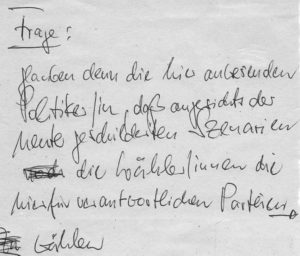 Frage:
glauben denn die hier anwesenden
Politiker/in, daß angesichts der
heute geschilderten Szenarien
die Wähler/innen die
hierfür verantwortlichen Parteien
wählen